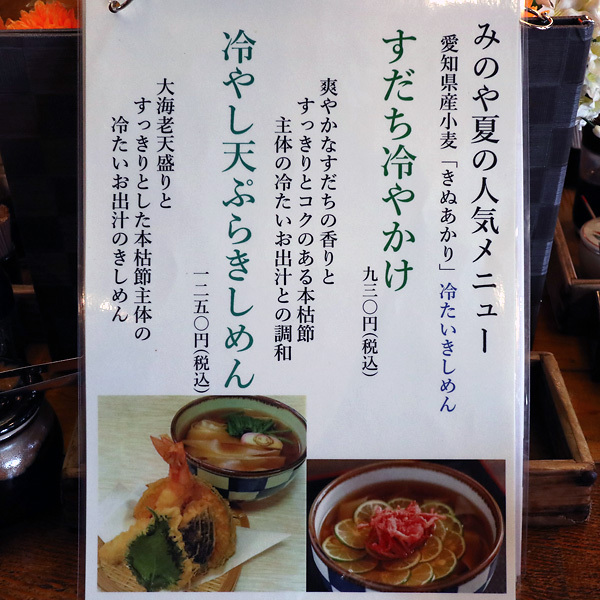 みのや夏の人気メニュー
愛知県産小麦「きぬあかり」冷たいきしめん
すだち冷やかけ
九三〇円(税込)
爽やかなすだちの香りと
すっきりとコクのある本枯節
主体の冷たいお出汁との調和
冷やし天ぷらきしめん
一二五〇円(税込)
大海老天盛りと
すっきりとした本枯節主体の
冷たいお出汁のきしめん